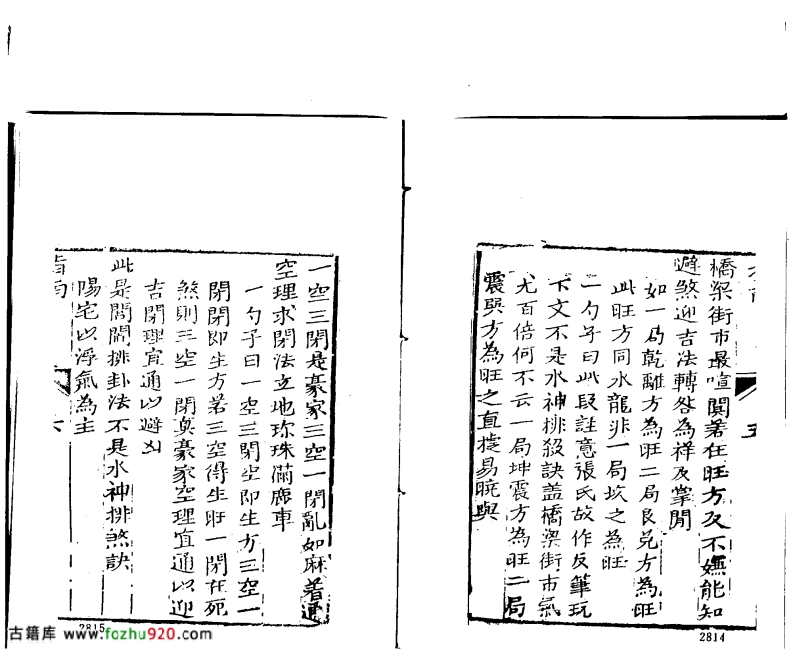 橋梁街市最喧闐若在旺方反不嫌能知
避煞迎吉法轉咎為祥反掌間
如一局乾離方為旺二局艮兌方為旺
此旺方同水龍非一局坎之為旺
二勺子曰此段註意張氏故作反筆玩
下文不是水神排殺訣盖橋梁街市氣
尤百倍何不云一局坤震方為旺二局
震巽方為旺之直捷易曉與
五
一空三閉是豪家三空一閉亂如麻若通
空理求閉法立地珎珠滿廂車
一勺子曰一空三閉坐即生方三空一
閉閉即生方若三空得生旺一閉在死
煞則三空一閉真豪家空理宜通以迎
吉閉理宜通以避凶
此是間間排卦法不是水神排煞訣
陽宅以浮氣為主
指南
六
古籍库 www.fozhu920.com
2815
2814